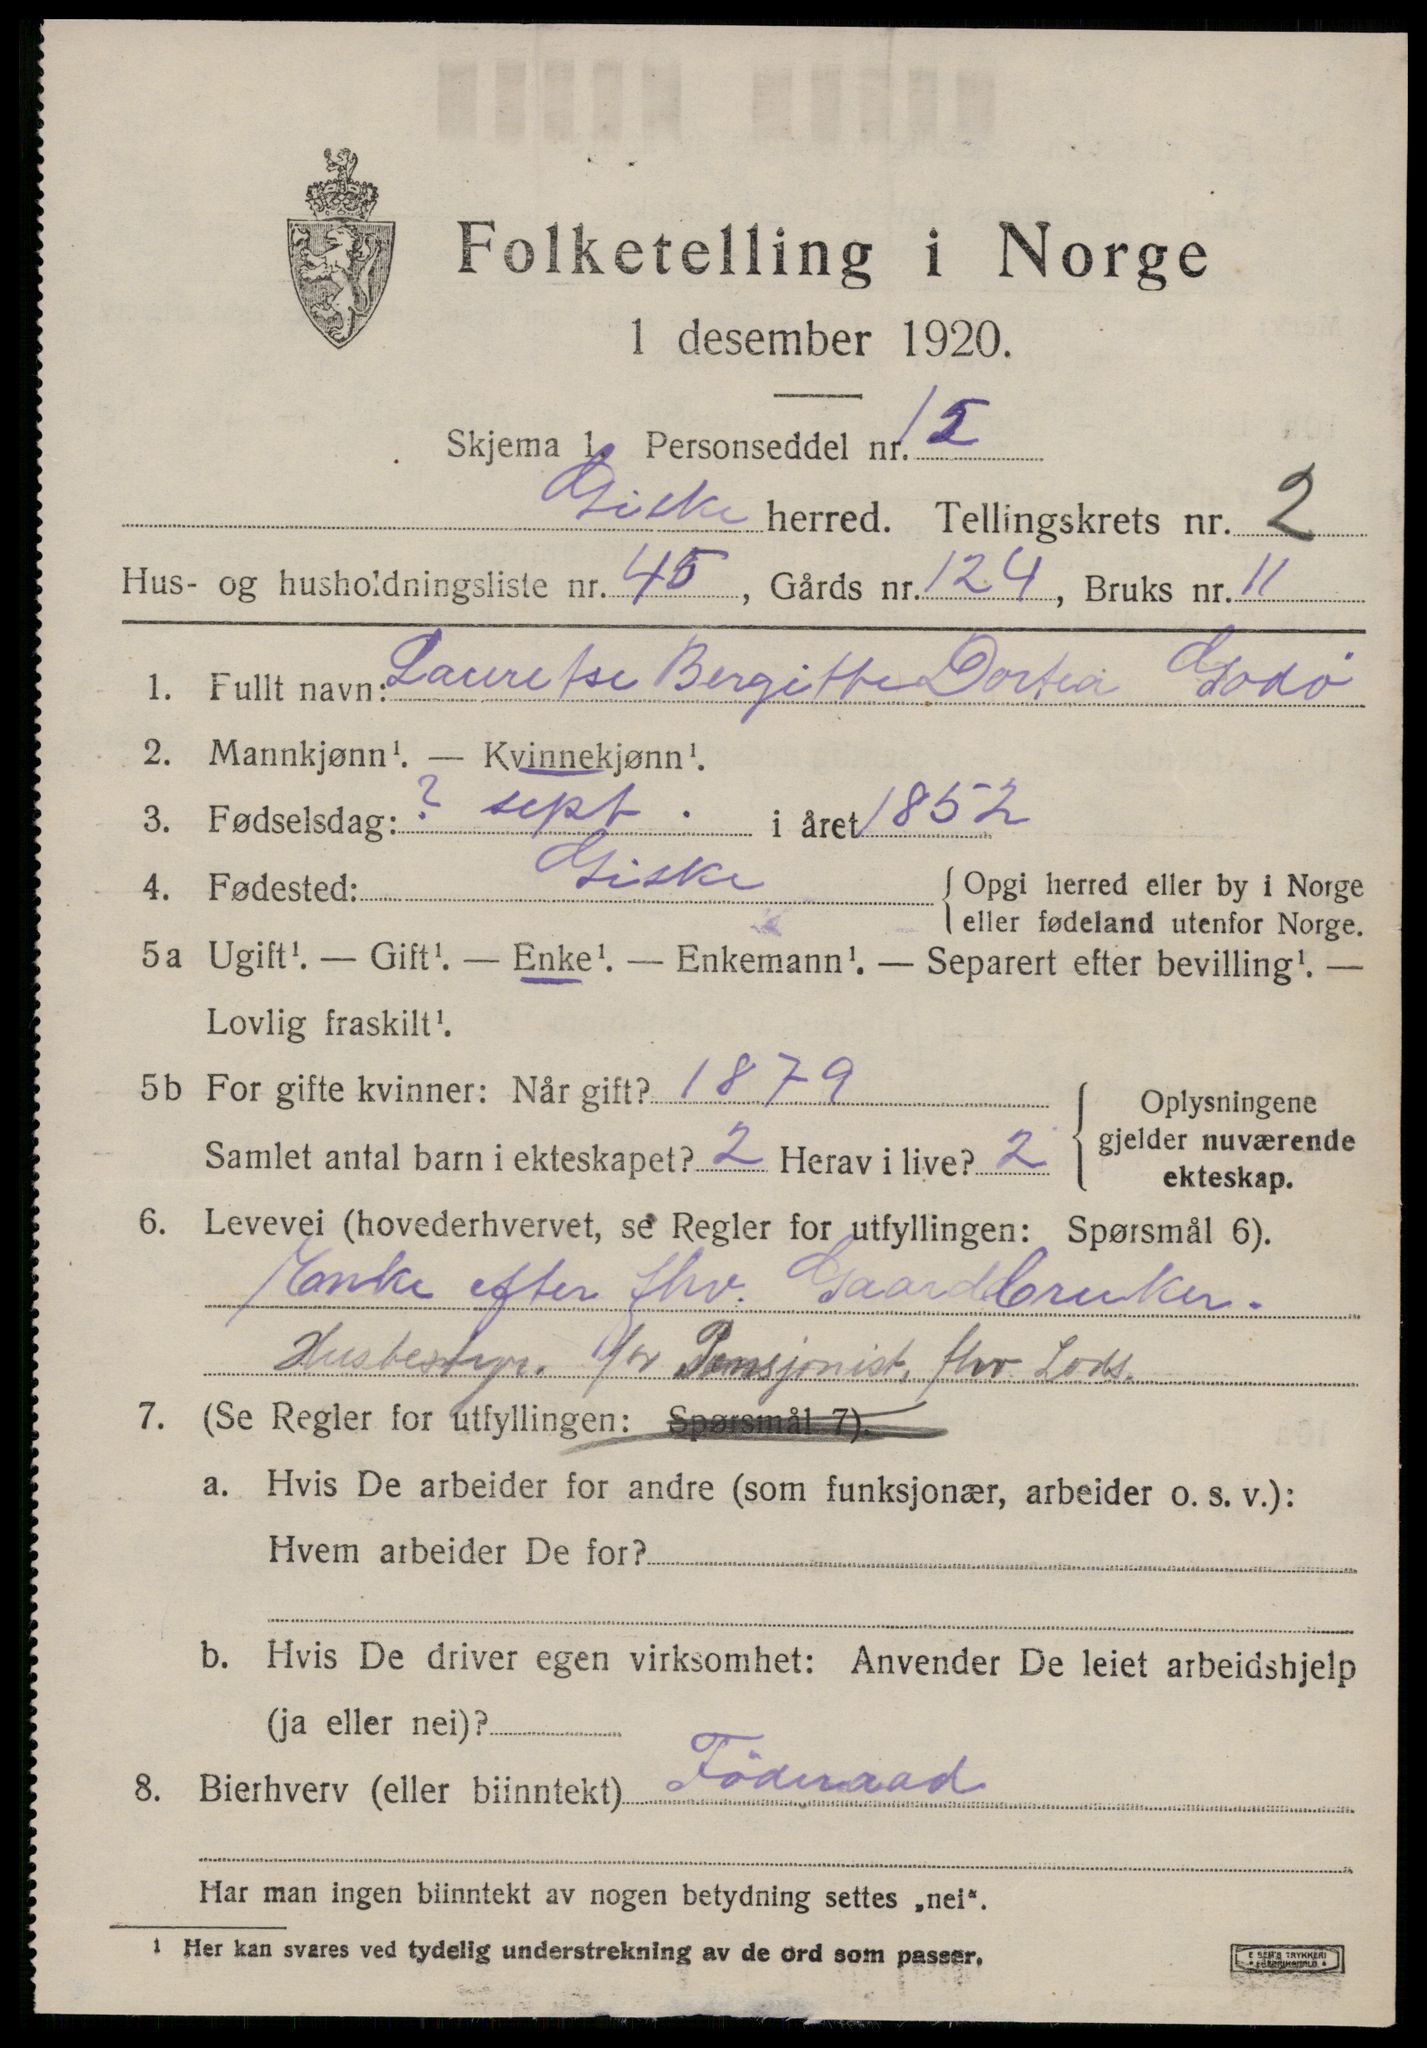 Folketelling i Norge
1 desember 1920.
Skjema 1. Personseddel nr. 15
Giske herred. Tellingskrets nr. 2
Hus- og husholdningsliste nr. 45, Gårds nr. 124, Bruks nr. 11
1. Fullt navn: Lauretse Bergitte Dortea Godø
2. Mannkjønn¹. — Kvinnekjønn¹.
3. Fødselsdag: ? sept. i året 1852
4. Fødested: Giske { Opgi herred eller by i Norge
eller fødeland utenfor Norge.
5a Ugift¹. — Gift¹. — Enke¹. — Enkemann¹. — Separert efter bevilling¹. —
Lovlig fraskilt¹.
5b For gifte kvinner: Når gift? 1879
Samlet antal barn i ekteskapet? 2 Herav i live? 2
Oplysningene
gjelder nuværende
ekteskap.
6. Levevei (hovederhvervet, se Regler for utfyllingen: Spørsmål 6).
Enke efter fhv. Gaardbruker.
Husbestyr. for Pensjonist, fhv. Lods.
7. (Se Regler for utfyllingen: Spørsmål 7).
a. Hvis De arbeider for andre (som funksjonær, arbeider o. s. v.):
Hvem arbeider De for?
b. Hvis De driver egen virksomhet: Anvender De leiet arbeidshjelp
(ja eller nei)?
8. Bierhverv (eller biinntekt) Föderaad
Har man ingen biinntekt av nogen betydning settes „nei“.
¹ Her kan svares ved tydelig understrekning av de ord som passer.